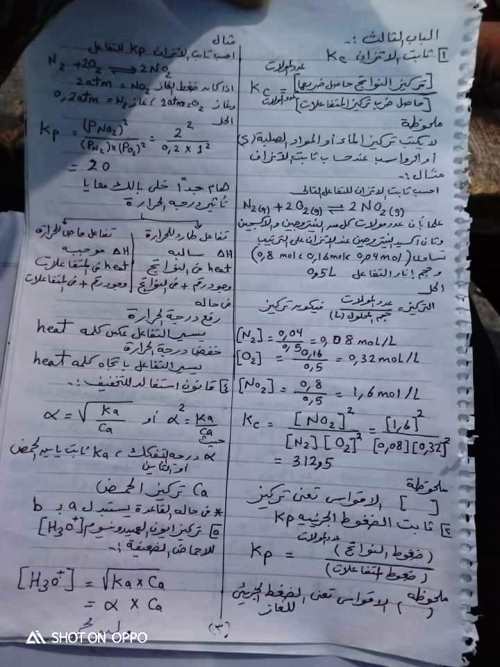 الباب الثالث :-
1 ثابت الاتزان Kc
عدد المولات
Kc = [تركيز النواتج حاصل ضربها]
[حاصل ضرب تركيز المتفاعلات]
عدد المولات
ملحوظة
لا يكتب تركيز الماء أو المواد الصلبة (s)
أو الرواسب عند حساب ثابت الاتزان
مثال :-
احسب ثابت الاتزان للتفاعل التالى
N2(g) + 2O2(g) ⇌ 2NO2(g)
علماً بأن عدد مولات كل من النيتروجين والأكسجين
وثانى أكسيد النيتروجين عند الاتزان على الترتيب
تساوى (0,04 mol، 0,16 mol، 0,8 mol)
وحجم إناء التفاعل 0,5 L
الحل
التركيز = عدد المولات / حجم المحلول (L) فيكون تركيز
[N2] = 0,04 / 0,5 = 0,08 mol/L
[O2] = 0,16 / 0,5 = 0,32 mol/L
[NO2] = 0,8 / 0,5 = 1,6 mol/L
Kc = [NO2]² / [N2][O2]² = [1,6]² / [0,08][0,32]²
= 312,5
ملحوظة
[ ] الاقواس تعنى تركيز
2 ثابت الضغوط الجزئية Kp
عدد المولات
Kp = (ضغوط النواتج)
(ضغوط المتفاعلات)
ملحوظة
( ) الاقواس تعنى الضغط الجزئى
للغاز
مثال
احسب ثابت الاتزان Kp للتفاعل
N2 + 2O2 ⇌ 2NO2
اذا كان ضغط لغاز NO2 = 2atm
الحل
Kp = (PNO2)² / (PN2) x (PO2)² = 2² / 0,2 x 1²
= 20
هام جداً خلى بالك معايا
تأثير درجه الحرارة
تفاعل طارد للحرارة
ΔH سالبه
heat فى النواتج
تفاعل ماص للحرارة
ΔH موجبه
heat فى المتفاعلات
فى حاله
رفع درجة الحرارة
يسير التفاعل عكس كلمه heat
خفض درجة الحرارة
يسير التفاعل باتجاه كلمه heat
قانون استفالد للتخفيف :-
α = √Ka / Ca أو α² = Ka / Ca
حيث
α درجه التفكك، Ka ثابت تأين الحمض
Ca تركيز الحمض
* فى حاله القاعدة يستبدل a بـ b
5 تركيز ايون الهيدرونيوم [H3O+]
للاحماض الضعيفة :-
[H3O+] = √Ka x Ca
= α x Ca
(3)
SHOT ON OPPO